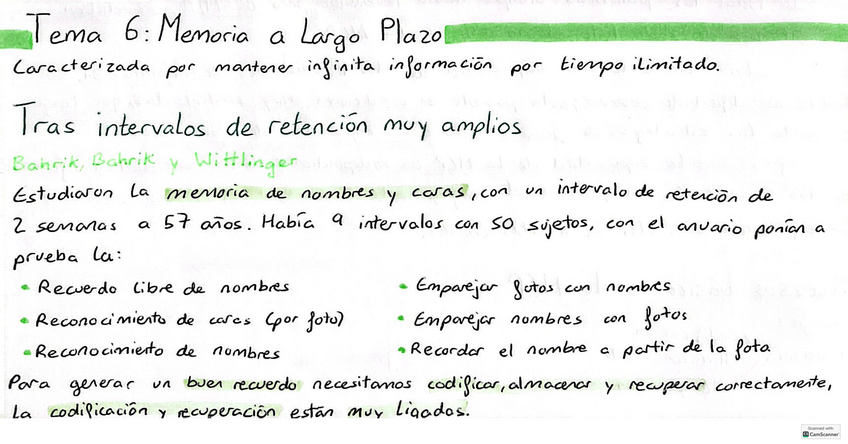 Tema 6: Memoria a Largo Plazo
Caracterizada por mantener infinita información por tiempo ilimitado.
Tras intervalos de retención muy amplios
Bahrik, Bahrik y Wittlinger
Estudiaron la memoria de nombres y caras, con un intervalo de retención de
2 semanas a 57 años. Había 9 intervalos con 50 sujetos, con el anuario ponían a
prueba la:
• Recuerdo libre de nombres
• Reconocimiento de caras (por foto)
• Reconocimiento de nombres
• Emparejar fotos con nombres
• Emparejar nombres con fotos
• Recordar el nombre a partir de la foto
Para generar un buen recuerdo necesitamos codificar, almacenar y recuperar correctamente,
la codificación y recuperación están muy ligadas.
Scanned with
CamScanner